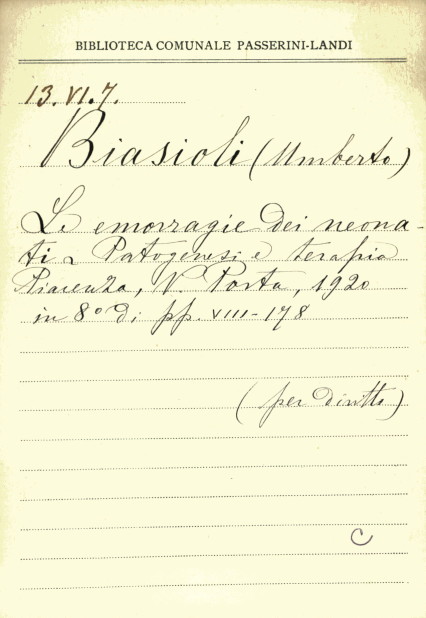 BIBLIOTECA COMUNALE PASSERINI-LANDI
13.VI.7.
Biasioli (Umberto)
Le emorragie dei neona-
ti - Patogenesi e terapia
Piacenza, V. Porta, 1920
in 8° di pp. VIII-178
(per diritto)
C